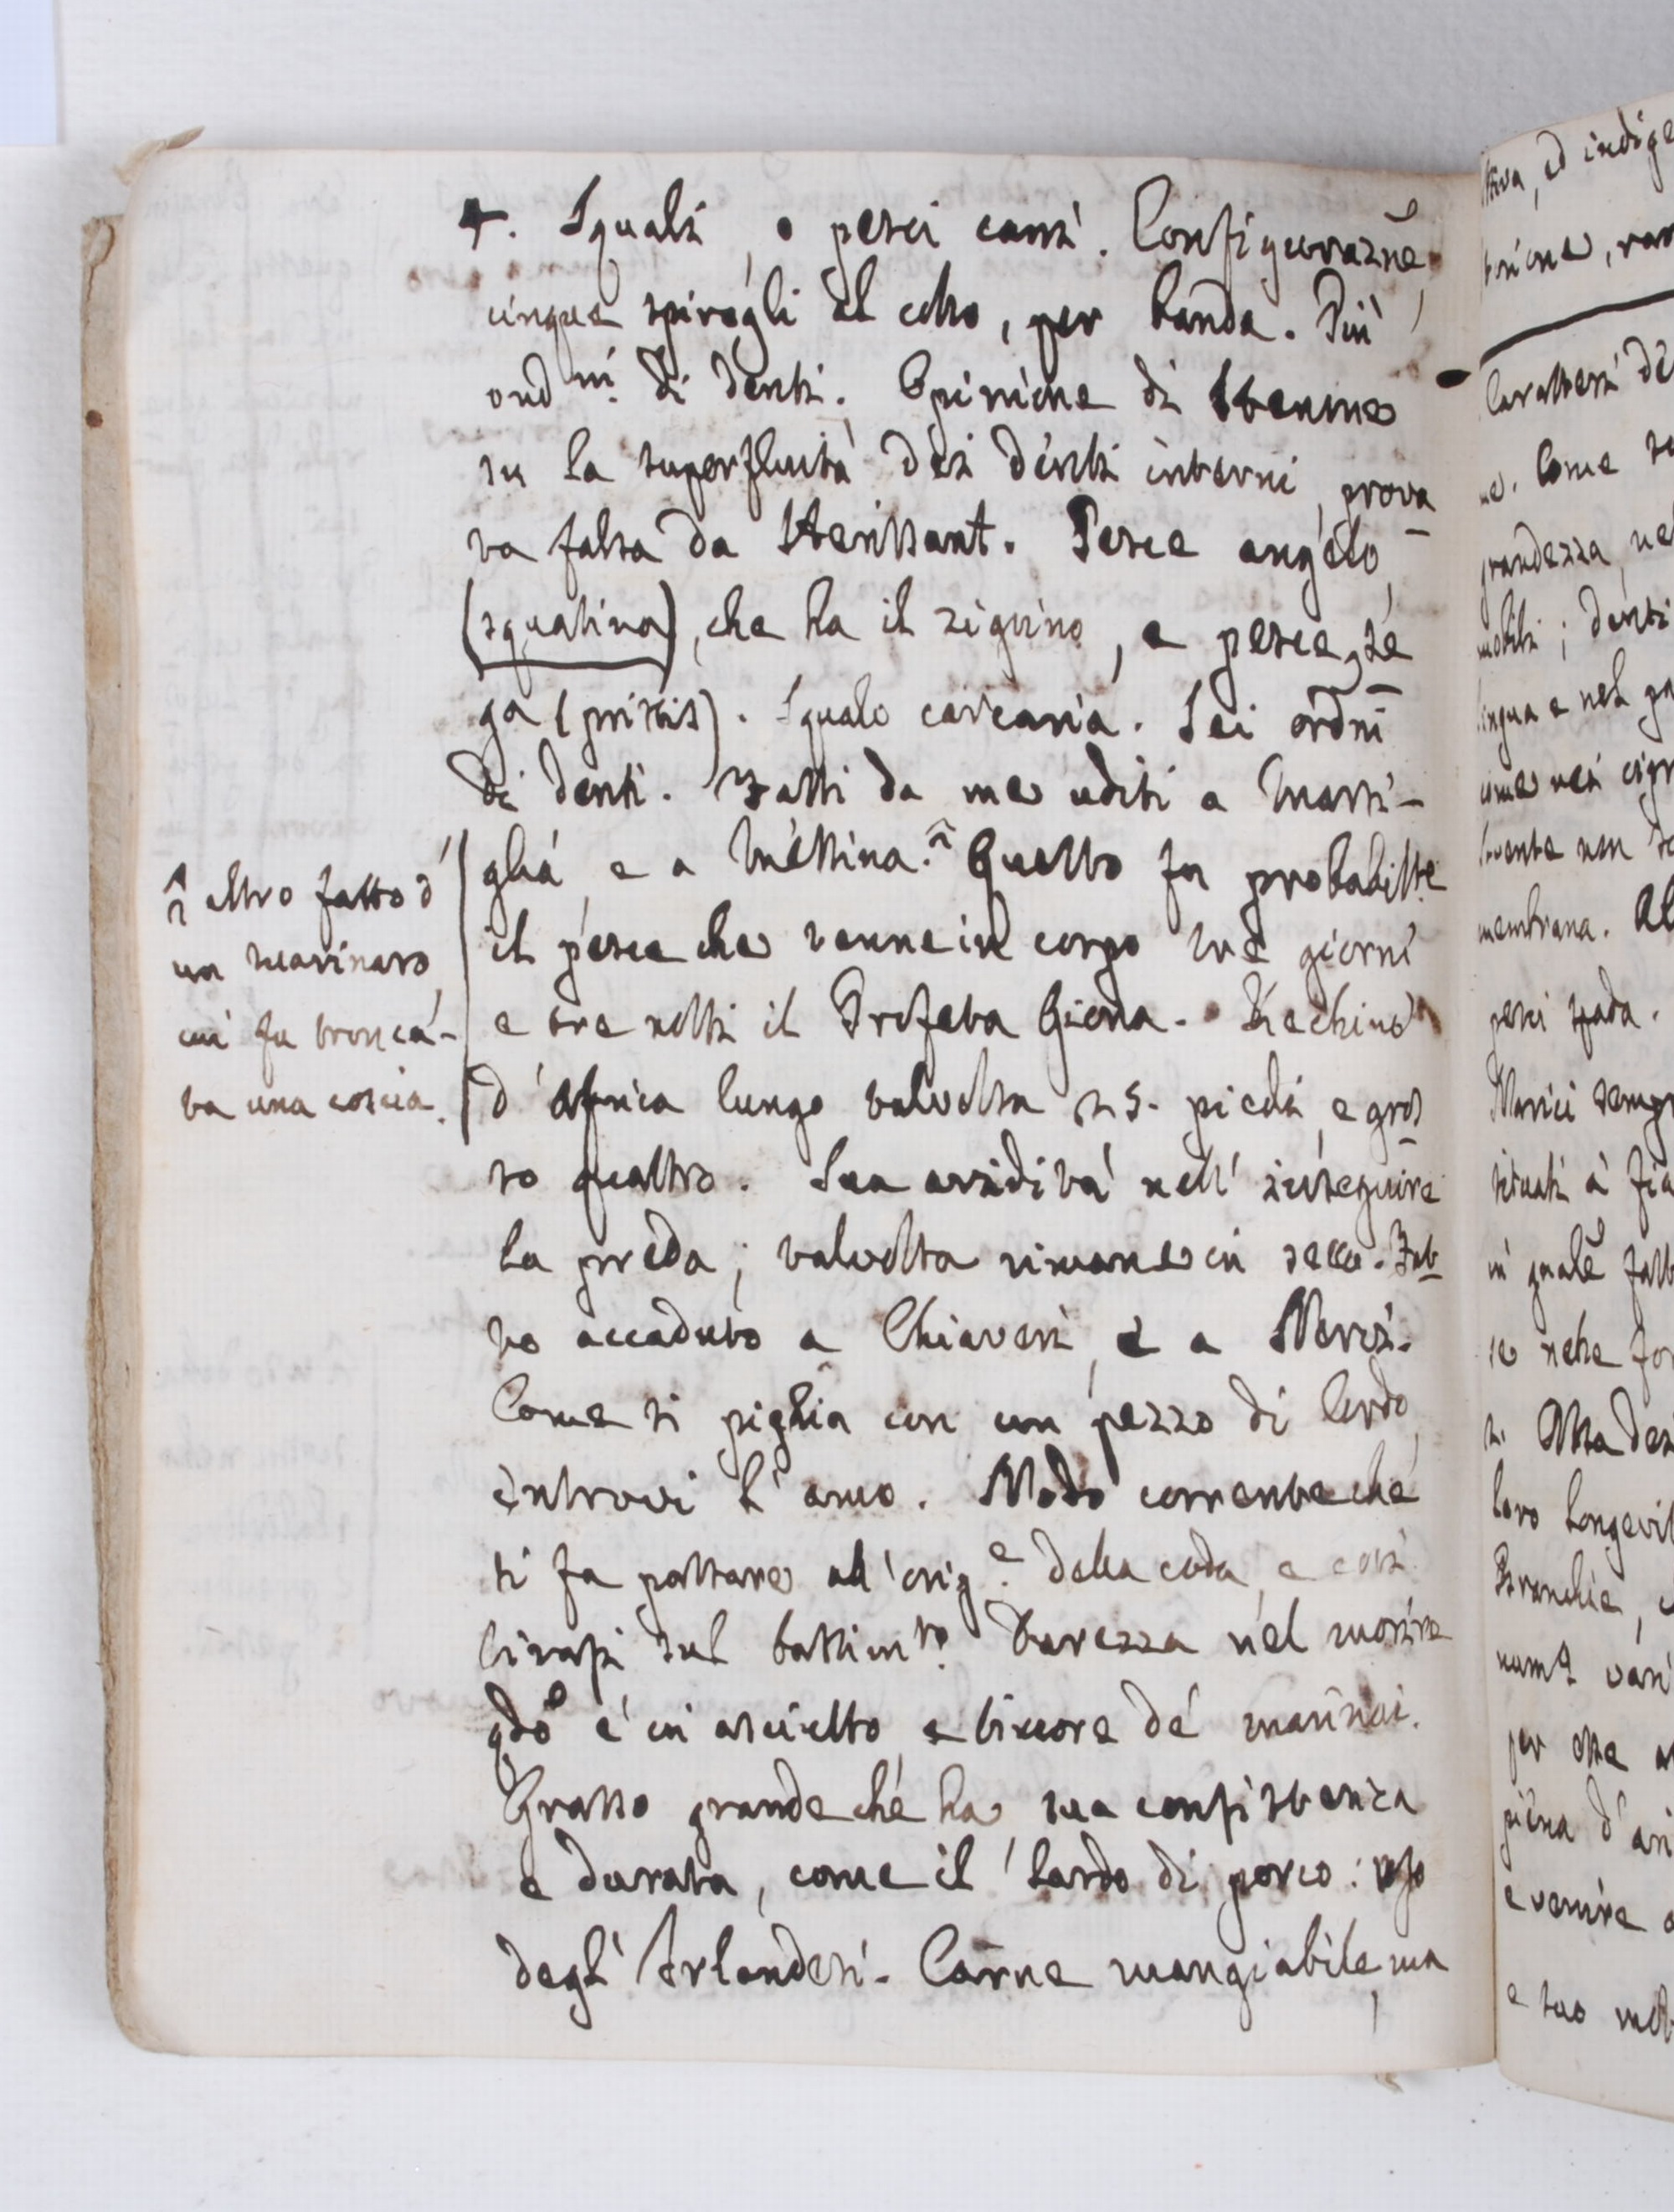 4. Squali, o pesci cani. Configurazñe,
cinque spiragli al collo, per banda. Più
ordni. di denti. Opinione di Stenone
su la superfluità dei denti interni, prova
ta falsa da Herissant. Pesce angelo,
(squatina), che ha il zigrino, e pesce se
ga (pristis). Squalo carcaria. Sei ordni
di denti. Fatti da me uditi a Marsi-
glia, e a Messina. Questo fu probabilte
il pesce che tenne in corpo tre giorni
e tre notti il Profeta Giona. Rechino
d'Africa lungo talvolta 25. piedi, e gros
so quattro. Sua avidità nell' inseguire
la preda; talvolta rimane in secco. Fat
to accaduto a Chiaveri, e a Nervi.
Come si piglia con un pezzo di lardo,
entrovi l'amo. Nodo corrente che
si fa passare all'orige. della coda, e così
tirasi sul bastimto. Durezza nel morire
qdo è in asciutto e timore de' marinai.
Grasso grande che ha sua consistenza
e durata, come il lardo di porco: uso
degl' Irlandesi. Carne mangiabile, ma
altro fatto d'
un marinaro,
cui fu tronca-
ta una coscia.
tiva, ed indige
Caratteri de
ne. Come
grandezza, ne
mobili; denti
lingua e nel pa
membrana. Al
pesci spada.
situati a' fia
in quale fatt
se nelle for
loro longevit
Branchie,
per esse
piena d'ari
e venire a
e suo